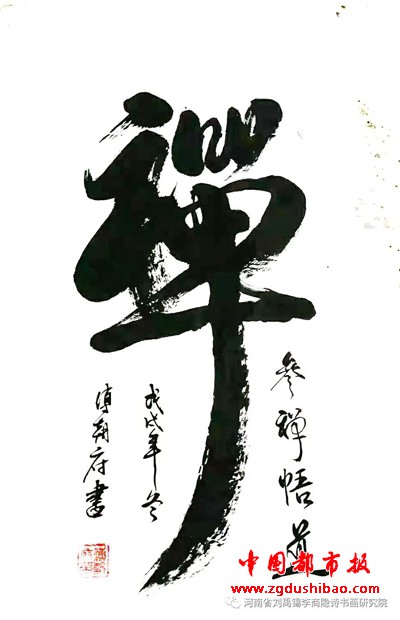 禪
參禅悟道
戊戌年冬
傅朔府書
中国都市报
www.zgdushibao.com
河南省刘禹锡李商隐诗书画研究院